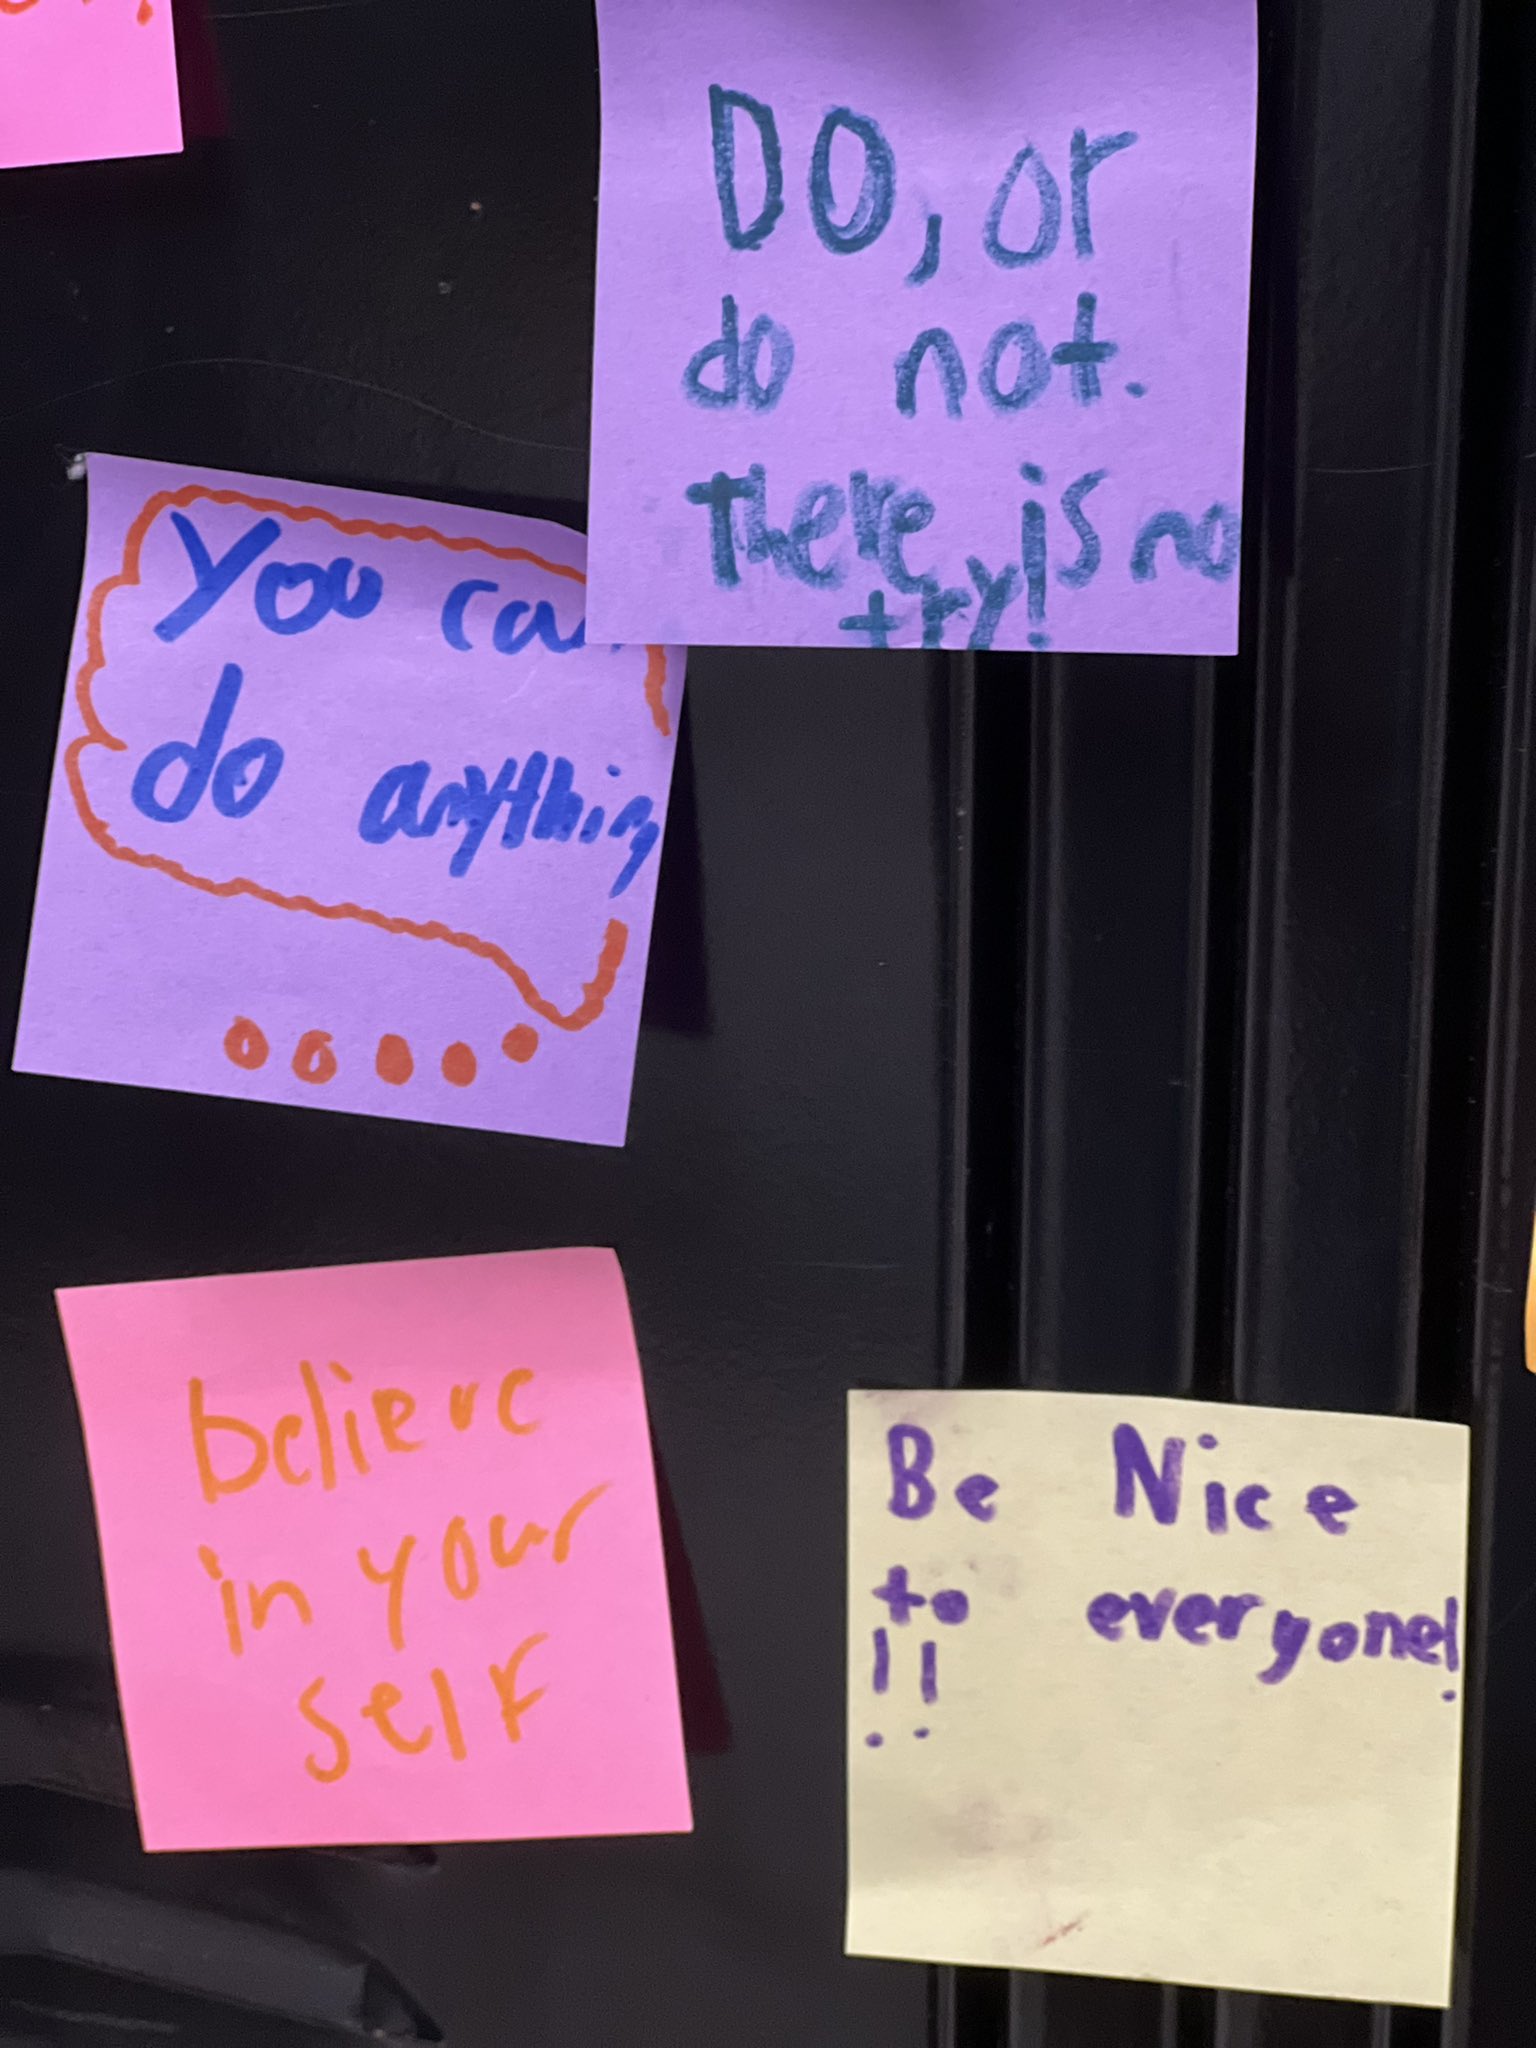 DO, or
do not.
there is no
try!
You can
do anything
believe
in your
self
Be Nice
to everyone!
!!